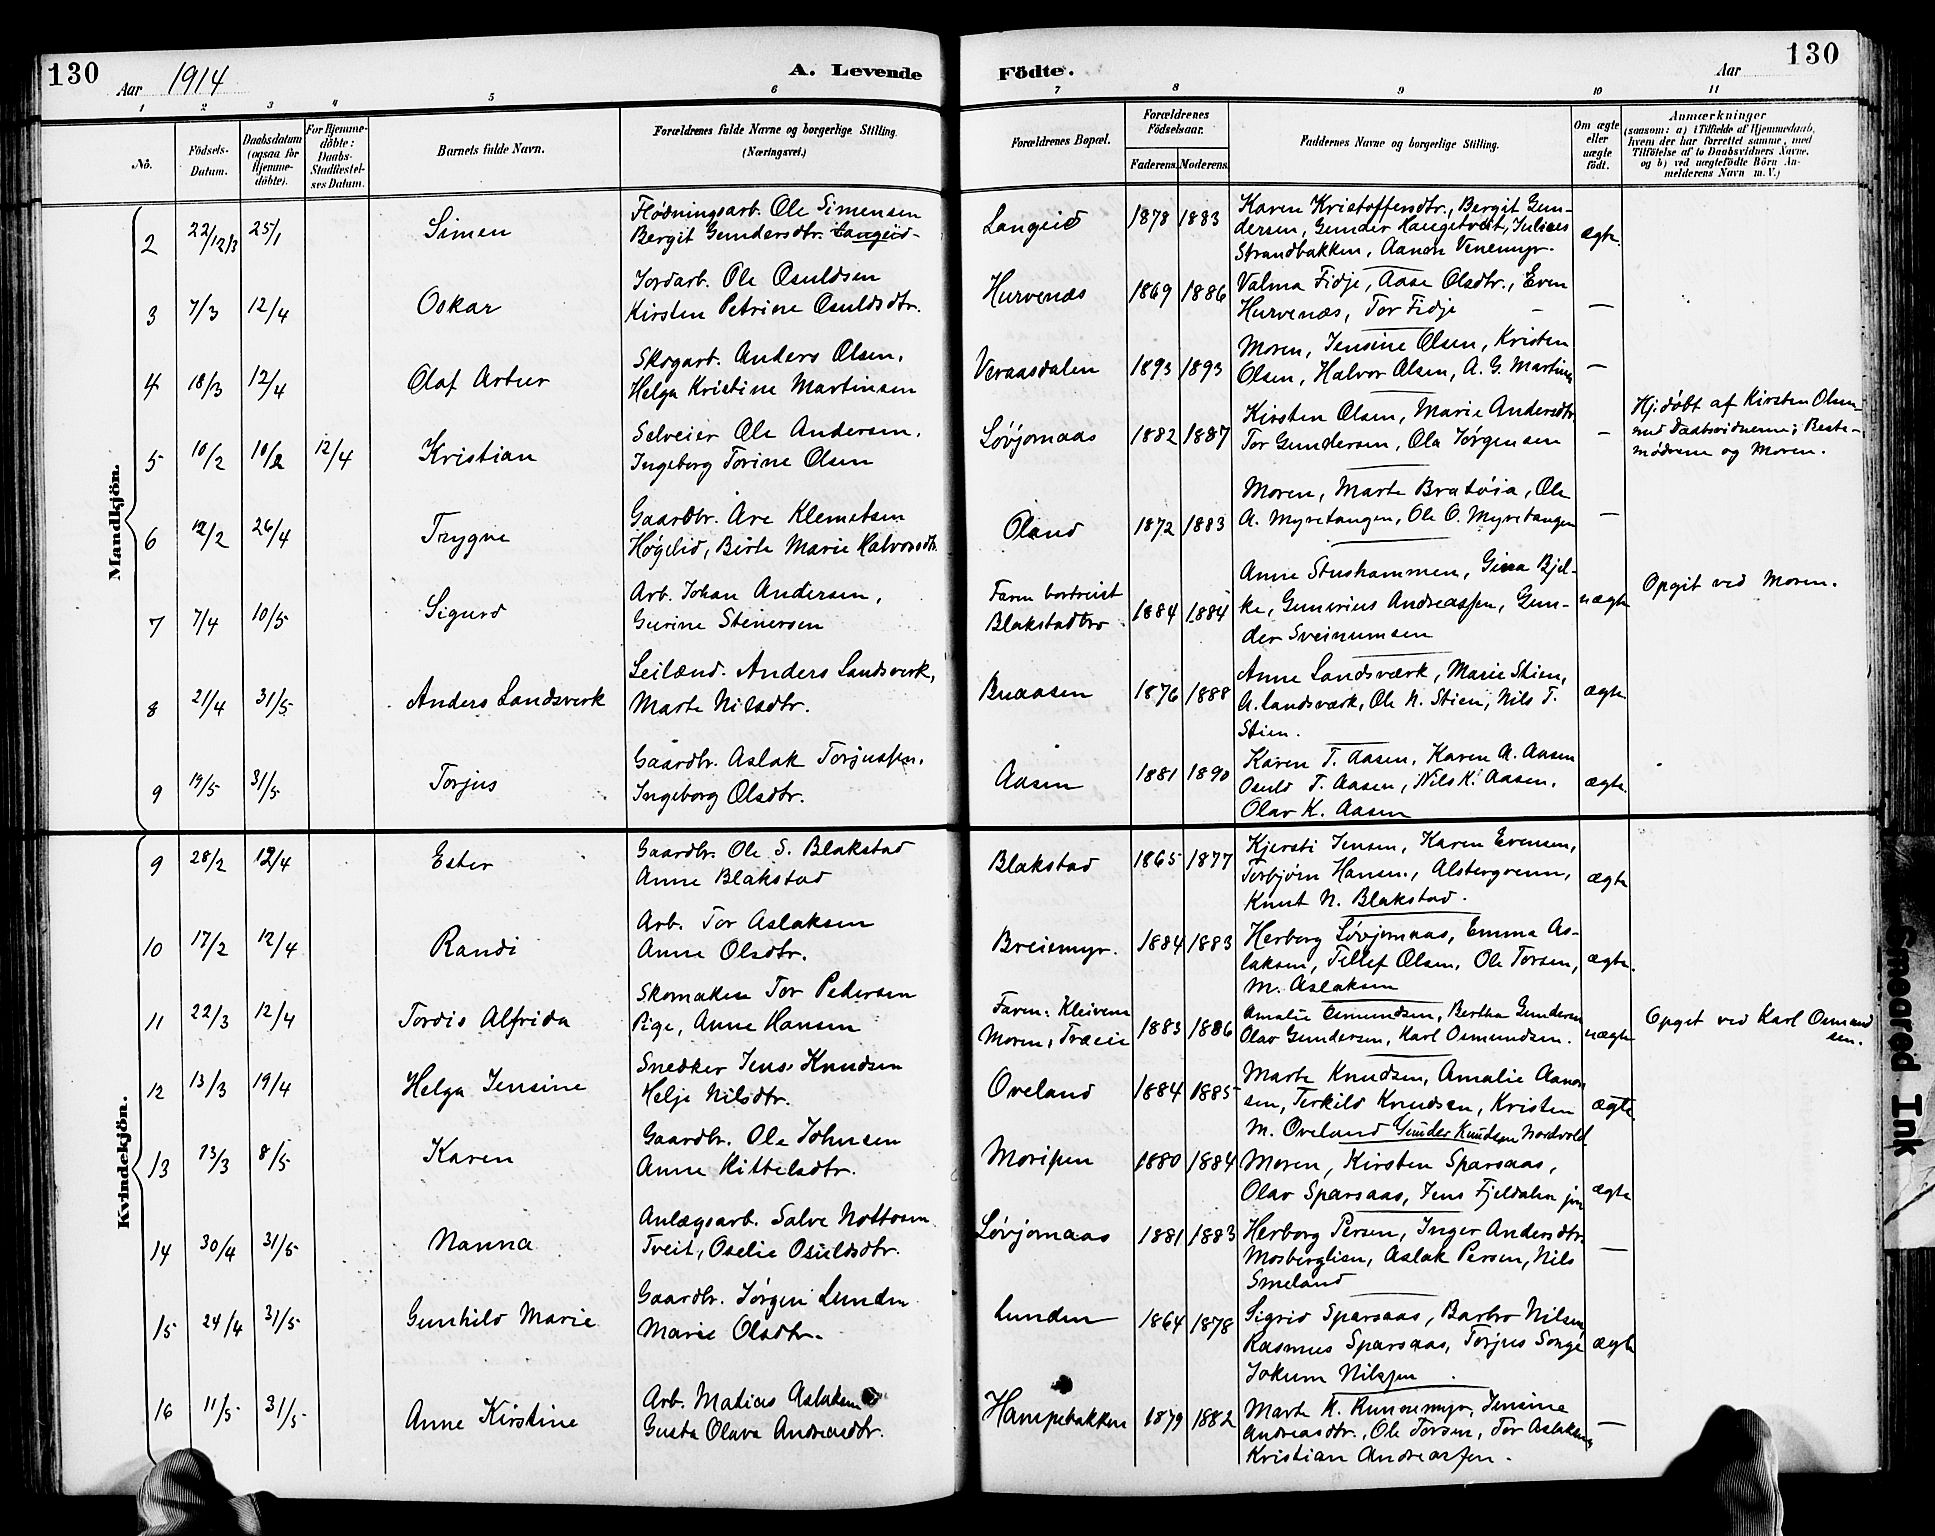 130
Aar 1914
A. Levende
Födte.
Aar
130
1 2 3 4 5 6 7 8 9 10 11
No.
Födsels-Datum.
Daabsdatum (ogsaa for Hjemme-döbte).
For Hjemme-döbte: Daabs-Stadfæstel-ses Datum.
Barnets fulde Navn.
Forældrenes fulde Navne og borgerlige Stilling. (Næringsvei.)
Forældrenes Bopæl.
Forældrenes Födselsaar.
Faderens. Moderens.
Faddernes Navne og borgerlige Stilling.
Om ægte eller uægte födt.
Anmærkninger
(saasom: a) i Tilfælde af Hjemmedaab, hvem der har forrettet samme, med Tilföielse af to Daabsvidners Navne, og b) ved uægtefödte Börn An-melderens Navn m. V.)
Mandkjön.
2 22/12/13 25/1 Simen Flødningsarb. Ole Simensen Langeid 1878 1883 Karen Kristoffersdtr., Bergit Gun-
Bergit Gundersdtr. Langeid dersen, Gunder Haugetveit, Julius ægte.
Strandbakken, Aanon Venemyr.
3 7/3 12/4 Oskar Jordarb. Ole Osuldsen Hurvenæs 1869 1886 Valma Fidje, Aase Olsdtr., Even
Kirsten Petrine Osuldsdtr. Hurvenæs, Tor Fidje —
4 18/3 12/4 Olaf Artur Skogarb. Anders Olsen, Veraasdalen 1893 1893 Moren, Jensine Olsen, Kristen
Helga Kristine Martinsen Olsen, Halvor Olsen, A. G. Martinsen —
5 10/2 10/2 12/4 Kristian Selveier Ole Andersen, Løvjomaas 1882 1887 Kirsten Olsen, Marie Andersdtr. — Hj.døbt af Kirsten Olsen
Ingeborg Torine Olsen Tor Gundersen, Ola Jørgensen med Daabsvidnerne; Beste-
mødrene og Moren.
6 12/2 26/4 Trygve Gaardbr. Are Klemetsen Oland 1872 1883 Moren, Marte Bratøia, Ole
Høgelid, Birte Marie Halvorsdtr. A. Myretangen, Ole O. Myretangen —
7 7/4 10/5 Sigurd Arb. Johan Andersen, Faren bortreist 1884 1884 Anne Stushammen, Gina Bjel- uægte Opgit ved Moren.
Gurine Stenersen Blakstadbro ke, Gunerius Andreassen, Gun-
der Sveinumsen
8 21/4 31/5 Anders Landsverk Leilænd. Anders Landsverk, Bruaasen 1876 1888 Anne Landsværk, Marie Stien, ægte
Marte Nilsdtr. A. Landsværk, Ole N. Stien, Nils T.
Stien.
9 19/5 31/5 Torjus Gaardbr. Aslak Torjussen, Aasen 1881 1890 Karen T. Aasen, Karen A. Aasen
Ingeborg Olsdtr. Osuld T. Aasen, Nils K. Aasen, ægte.
Olav K. Aasen
Kvindekjön.
9 28/2 12/4 Ester Gaardbr. Ole S. Blakstad Blakstad 1865 1877 Kjersti Jensen, Karen Evensen,
Anne Blakstad Torbjørn Hansen, Alstergrenn, ægte
Knut N. Blakstad.
10 17/2 12/4 Randi Arb. Tor Aslaksen Breiemyr. 1884 1883 Herborg Løvjomaas, Emma As-
Anne Olsdtr. laksen, Tellef Olsen, Ole Torsen, ægte.
M. Aslaksen
11 22/3 12/4 Tordis Alfrida Skomaker Tor Pedersen Faren: Kleivene 1883 1886 Amalie Osmundsen, Bertha Gundersen Opgit ved Karl Osmund
Pige, Anne Hansen Moren: Træie Olav Gundersen, Karl Osmundsen. uægte sen.
12 13/3 19/4 Helga Jensine Snedker Jens Knudsen Oveland 1884 1885 Marte Knudsen, Amalie Aanon
Helje Nilsdtr. sen, Terkild Knudsen, Kristen ægte.
M. Oveland Gunder Knudsen Nordvold
13 13/3 8/5 Karen Gaardbr. Ole Johnsen Moripen 1880 1884 Moren, Kirsten Sparsaas,
Anne Kittelsdtr. Olav Sparsaas, Jens Fjeldalen jun ægte
14 30/4 31/5 Nanna Anlægsarb. Salve Nottosen Løvjomaas 1881 1883 Herborg Persen, Inger Andersdtr.
Tveit, Oselie Osuldsdtr. Mosberglien, Aslak Persen, Nils —
Smeland
15 24/4 31/5 Gunhild Marie Gaardbr. Jørgen Lunden Lunden 1864 1878 Sigrid Sparsaas, Barbro Nilsen
Marie Olsdtr. Rasmus Sparsaas, Torjus Songe ægte
Jokum Nilssen.
16 11/5 31/5 Anne Kirstine Arb. Matias Aslaksen Hampebakken 1879 1882 Marte K. Runnemyr, Jensine
Gusta Olava Andreasdtr. Andreasdtr., Ole Torsen, Tor Aslaksen —
Kristian Andreassen.
Smeared Ink